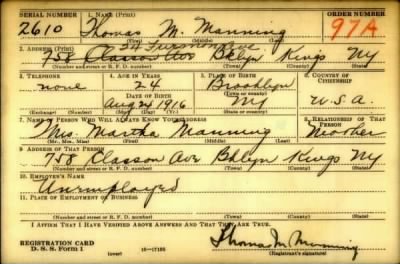 SERIAL NUMBER 1. NAME (Print) ORDER NUMBER
2610 Thomas M. Manning 97A
(First) (Middle) (Last)
34
2. ADDRESS (Print)
758 Classon Ave Bklyn Kings NY
(Number and street or R. F. D. number) (Town) (County) (State)
3. TELEPHONE 4. AGE IN YEARS 5. PLACE OF BIRTH 6. COUNTRY OF CITIZENSHIP
none 24 Brooklyn
DATE OF BIRTH (Town or county)
Aug 24 1916 NY U.S.A.
(Exchange) (Number) (Mo.) (Day) (Yr.) (State or country)
7. NAME OF PERSON WHO WILL ALWAYS KNOW YOUR ADDRESS 8. RELATIONSHIP OF THAT PERSON
Mrs. Martha Manning Mother
(Mr., Mrs., Miss) (First) (Middle) (Last)
9. ADDRESS OF THAT PERSON
758 Classon Ave Bklyn Kings NY
(Number and street or R. F. D. number) (Town) (County) (State)
10. EMPLOYER'S NAME
Unemployed
11. PLACE OF EMPLOYMENT OR BUSINESS
(Number and street or R. F. D. number) (Town) (County) (State)
I AFFIRM THAT I HAVE VERIFIED ABOVE ANSWERS AND THAT THEY ARE TRUE.
REGISTRATION CARD
D. S. S. Form 1 (over) 16—17105 Thomas M. Manning
(Registrant's signature)